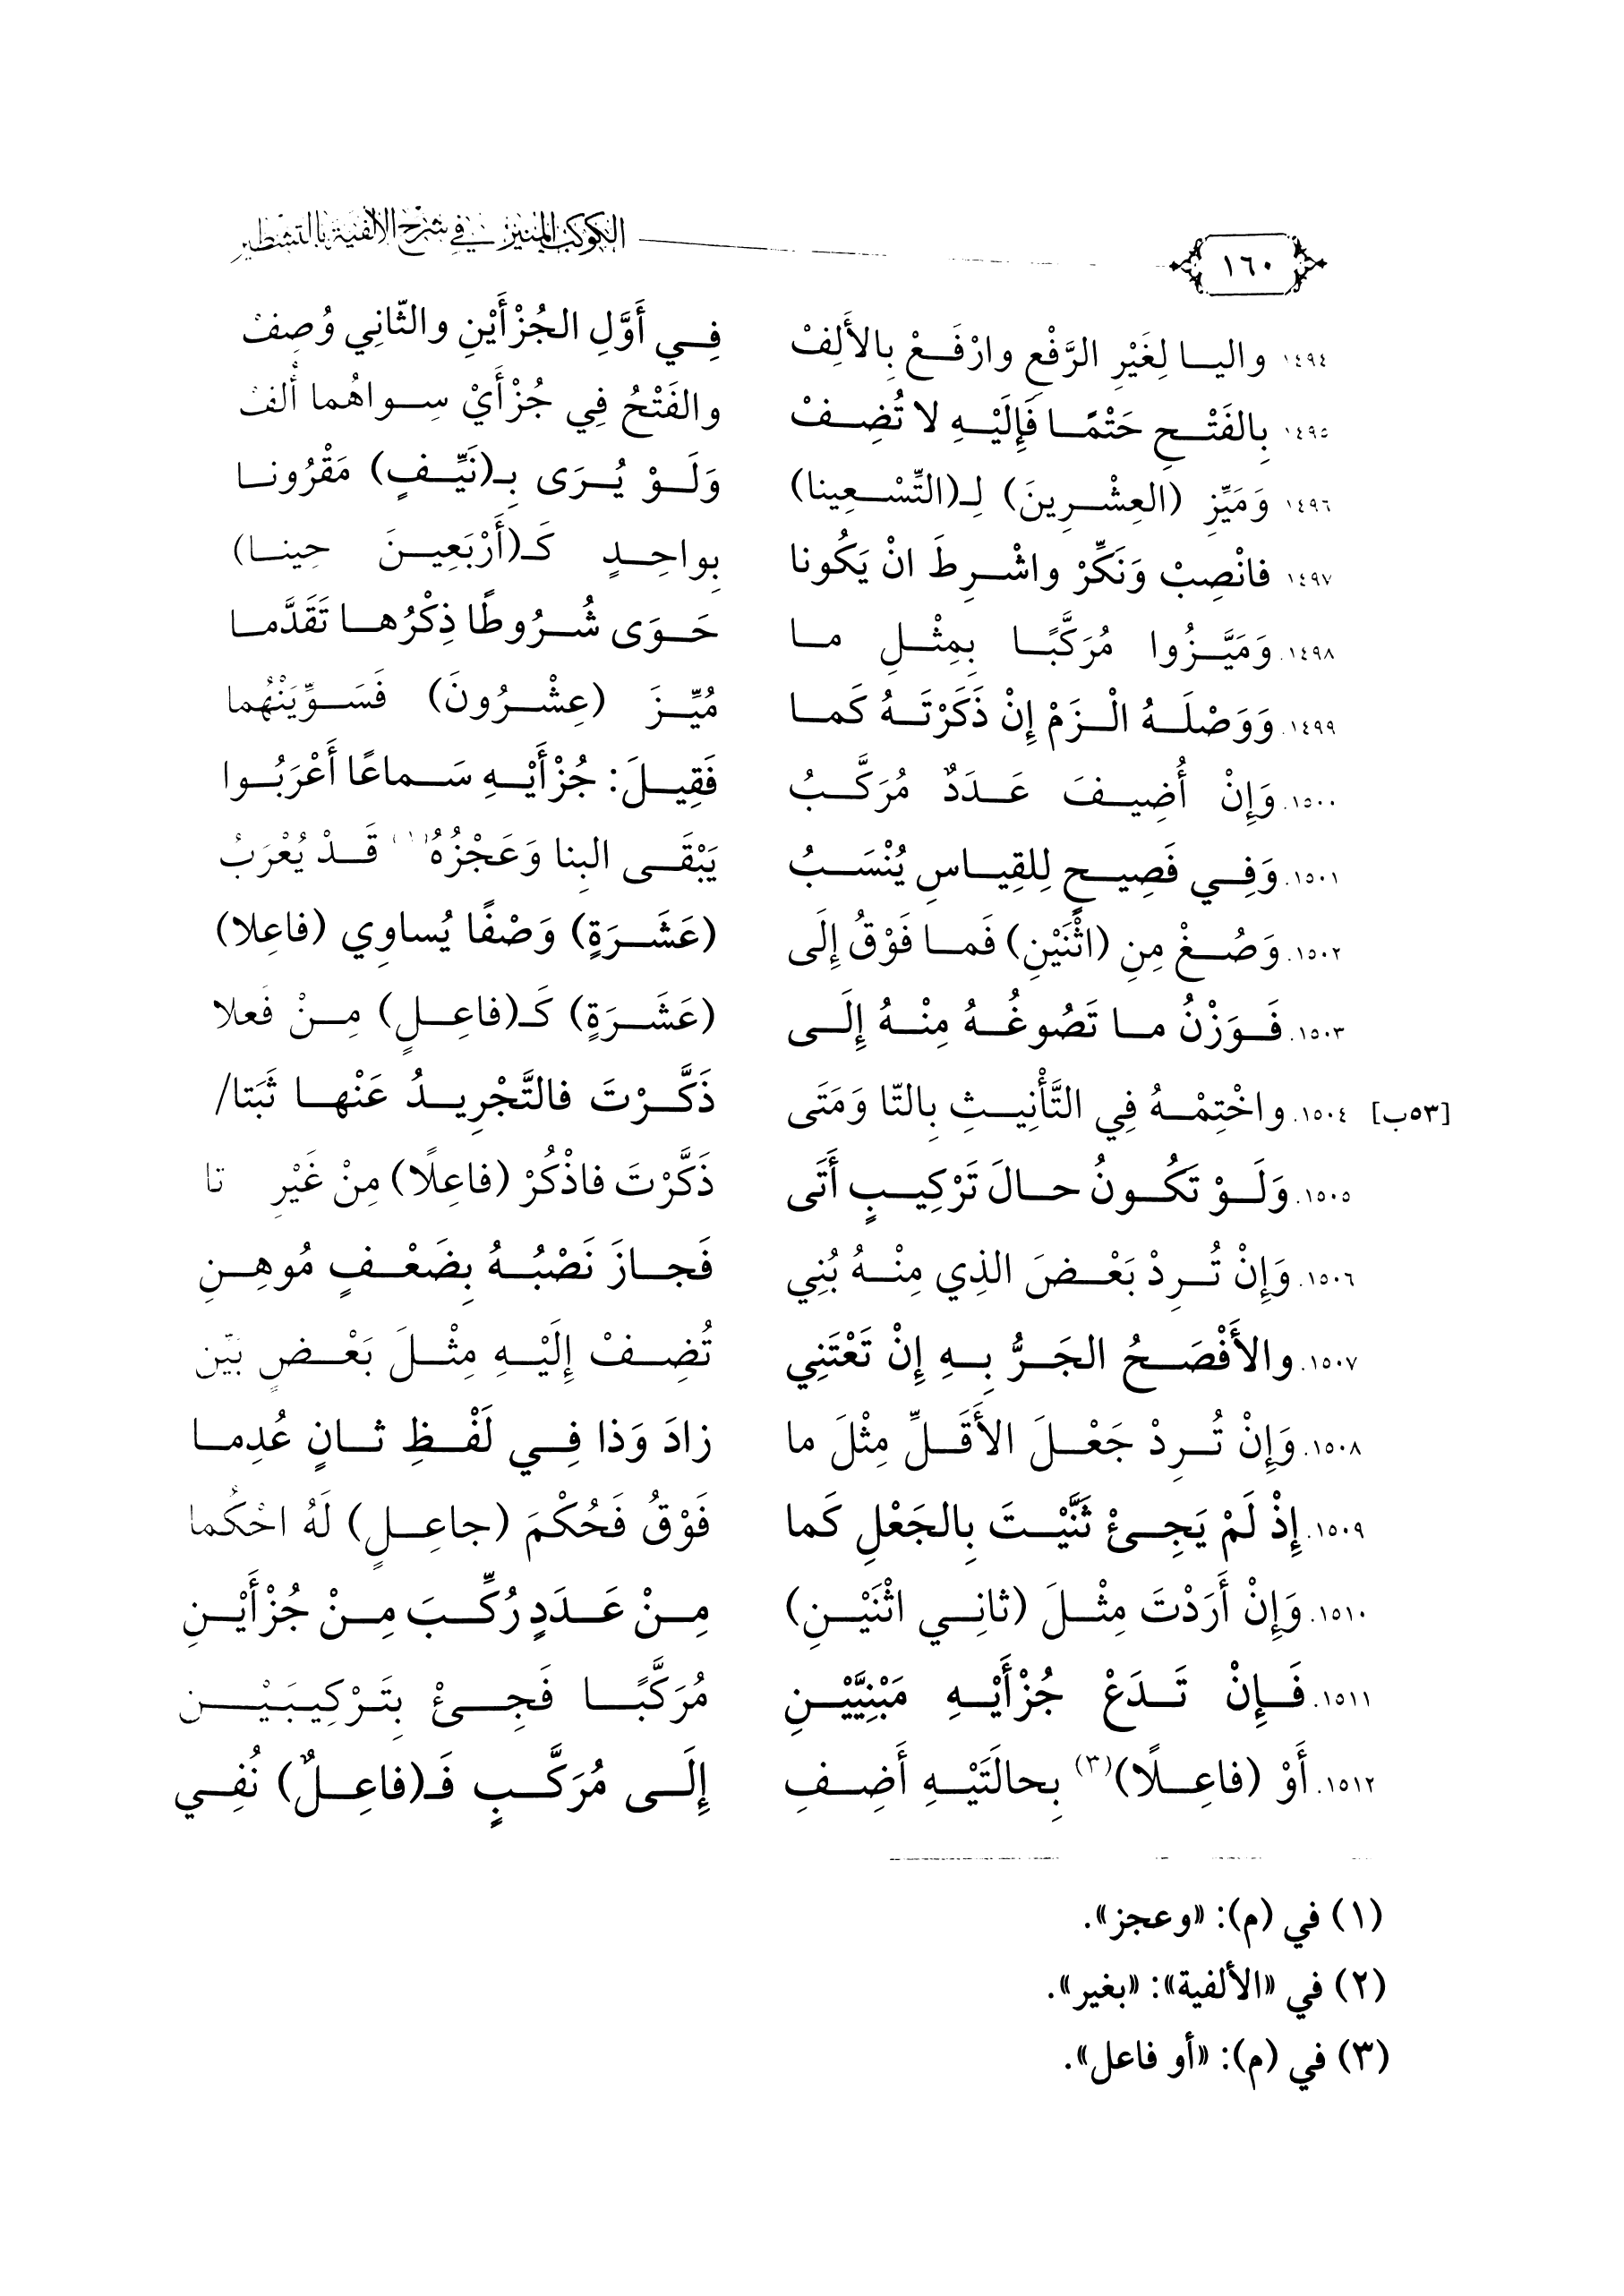 ١٦٠ الكوكب المنير في شرح الألفية بالتشطير
١٤٩٤ واليا لِغَيْرِ الرَّفْعِ وارْفَعْ بِالأَلِفْ فِي أَوَّلِ الجُزْأَيْنِ والثّانِي وُصِفْ
١٤٩٥ بِالفَتْحِ حَتْمًا فَإِلَيْهِ لا تُضِفْ والفَتْحُ فِي جُزْأَيْ سِواهُما أُلِفْ
١٤٩٦ وَمَيِّزِ (العِشْرِينَ) لِـ(التِّسْعِينا) وَلَوْ يُرَى بِـ(نَيِّفٍ) مَقْرُونا
١٤٩٧ فانْصِبْ وَنَكِّرْ واشْرِطَ انْ يَكُونا بِواحِدٍ كَـ(أَرْبَعِينَ حِينا)
١٤٩٨. وَمَيَّزُوا مُرَكَّبًا بِمِثْلِ ما حَوَى شُرُوطًا ذِكْرُها تَقَدَّما
١٤٩٩. وَوَصْلَهُ الْزَمْ إِنْ ذَكَرْتَهُ كَما مُيِّزَ (عِشْرُونَ) فَسَوِّيَنْهُما
١٥٠٠. وَإِنْ أُضِيفَ عَدَدٌ مُرَكَّبُ فَقِيلَ: جُزْأَيْهِ سَماعًا أَعْرَبُوا
١٥٠١. وَفِي فَصِيحٍ لِلقِياسِ يُنْسَبُ يَبْقَى البِنا وَعَجْزُهُ(١) قَدْ يُعْرَبُ
١٥٠٢. وَصُغْ مِنِ (اثْنَيْنِ) فَما فَوْقُ إِلَى (عَشَرَةٍ) وَصْفًا يُساوِي (فاعِلا)
١٥٠٣. فَوَزْنُ ما تَصُوغُهُ مِنْهُ إِلَى (عَشَرَةٍ) كَـ(فاعِلٍ) مِنْ فَعَلا
[٥٣ب] ١٥٠٤. واخْتِمْهُ فِي التَّأْنِيثِ بِالتّا وَمَتَى ذَكَّرْتَ فالتَّجْرِيدُ عَنْها ثَبَتا/
١٥٠٥. وَلَوْ تَكُونُ حالَ تَرْكِيبٍ أَتَى ذَكَّرْتَ فاذْكُرْ (فاعِلًا) مِنْ غَيْرِ تا
١٥٠٦. وَإِنْ تُرِدْ بَعْضَ الذِي مِنْهُ بُنِي فَجازَ نَصْبُهُ بِضَعْفٍ مُوهِنِ
١٥٠٧. والأَفْصَحُ الجَرُّ بِهِ إِنْ تَعْتَنِي تُضِفْ إِلَيْهِ مِثْلَ بَعْضٍ بَيِّنِ
١٥٠٨. وَإِنْ تُرِدْ جَعْلَ الأَقَلِّ مِثْلَ ما زادَ وَذا فِي لَفْظِ ثانٍ عُدِما
١٥٠٩. إِذْ لَمْ يَجِئْ ثَنَّيْتَ بِالجَعْلِ كَما فَوْقُ فَحُكْمَ (جاعِلٍ) لَهُ احْكُما
١٥١٠. وَإِنْ أَرَدْتَ مِثْلَ (ثانِي اثْنَيْنِ) مِنْ عَدَدٍ رُكِّبَ مِنْ جُزْأَيْنِ
١٥١١. فَإِنْ تَدَعْ جُزْأَيْهِ مَبْنِيَّيْنِ مُرَكَّبًا فَجِئْ بِتَرْكِيبَيْنِ
١٥١٢. أَوْ (فاعِلًا)(٣) بِحالَتَيْهِ أَضِفِ إِلَى مُرَكَّبٍ فَـ(فاعِلٌ) نُفِي
(١) في (م): «وعجز».
(٢) في «الألفية»: «بغير».
(٣) في (م): «أو فاعل».